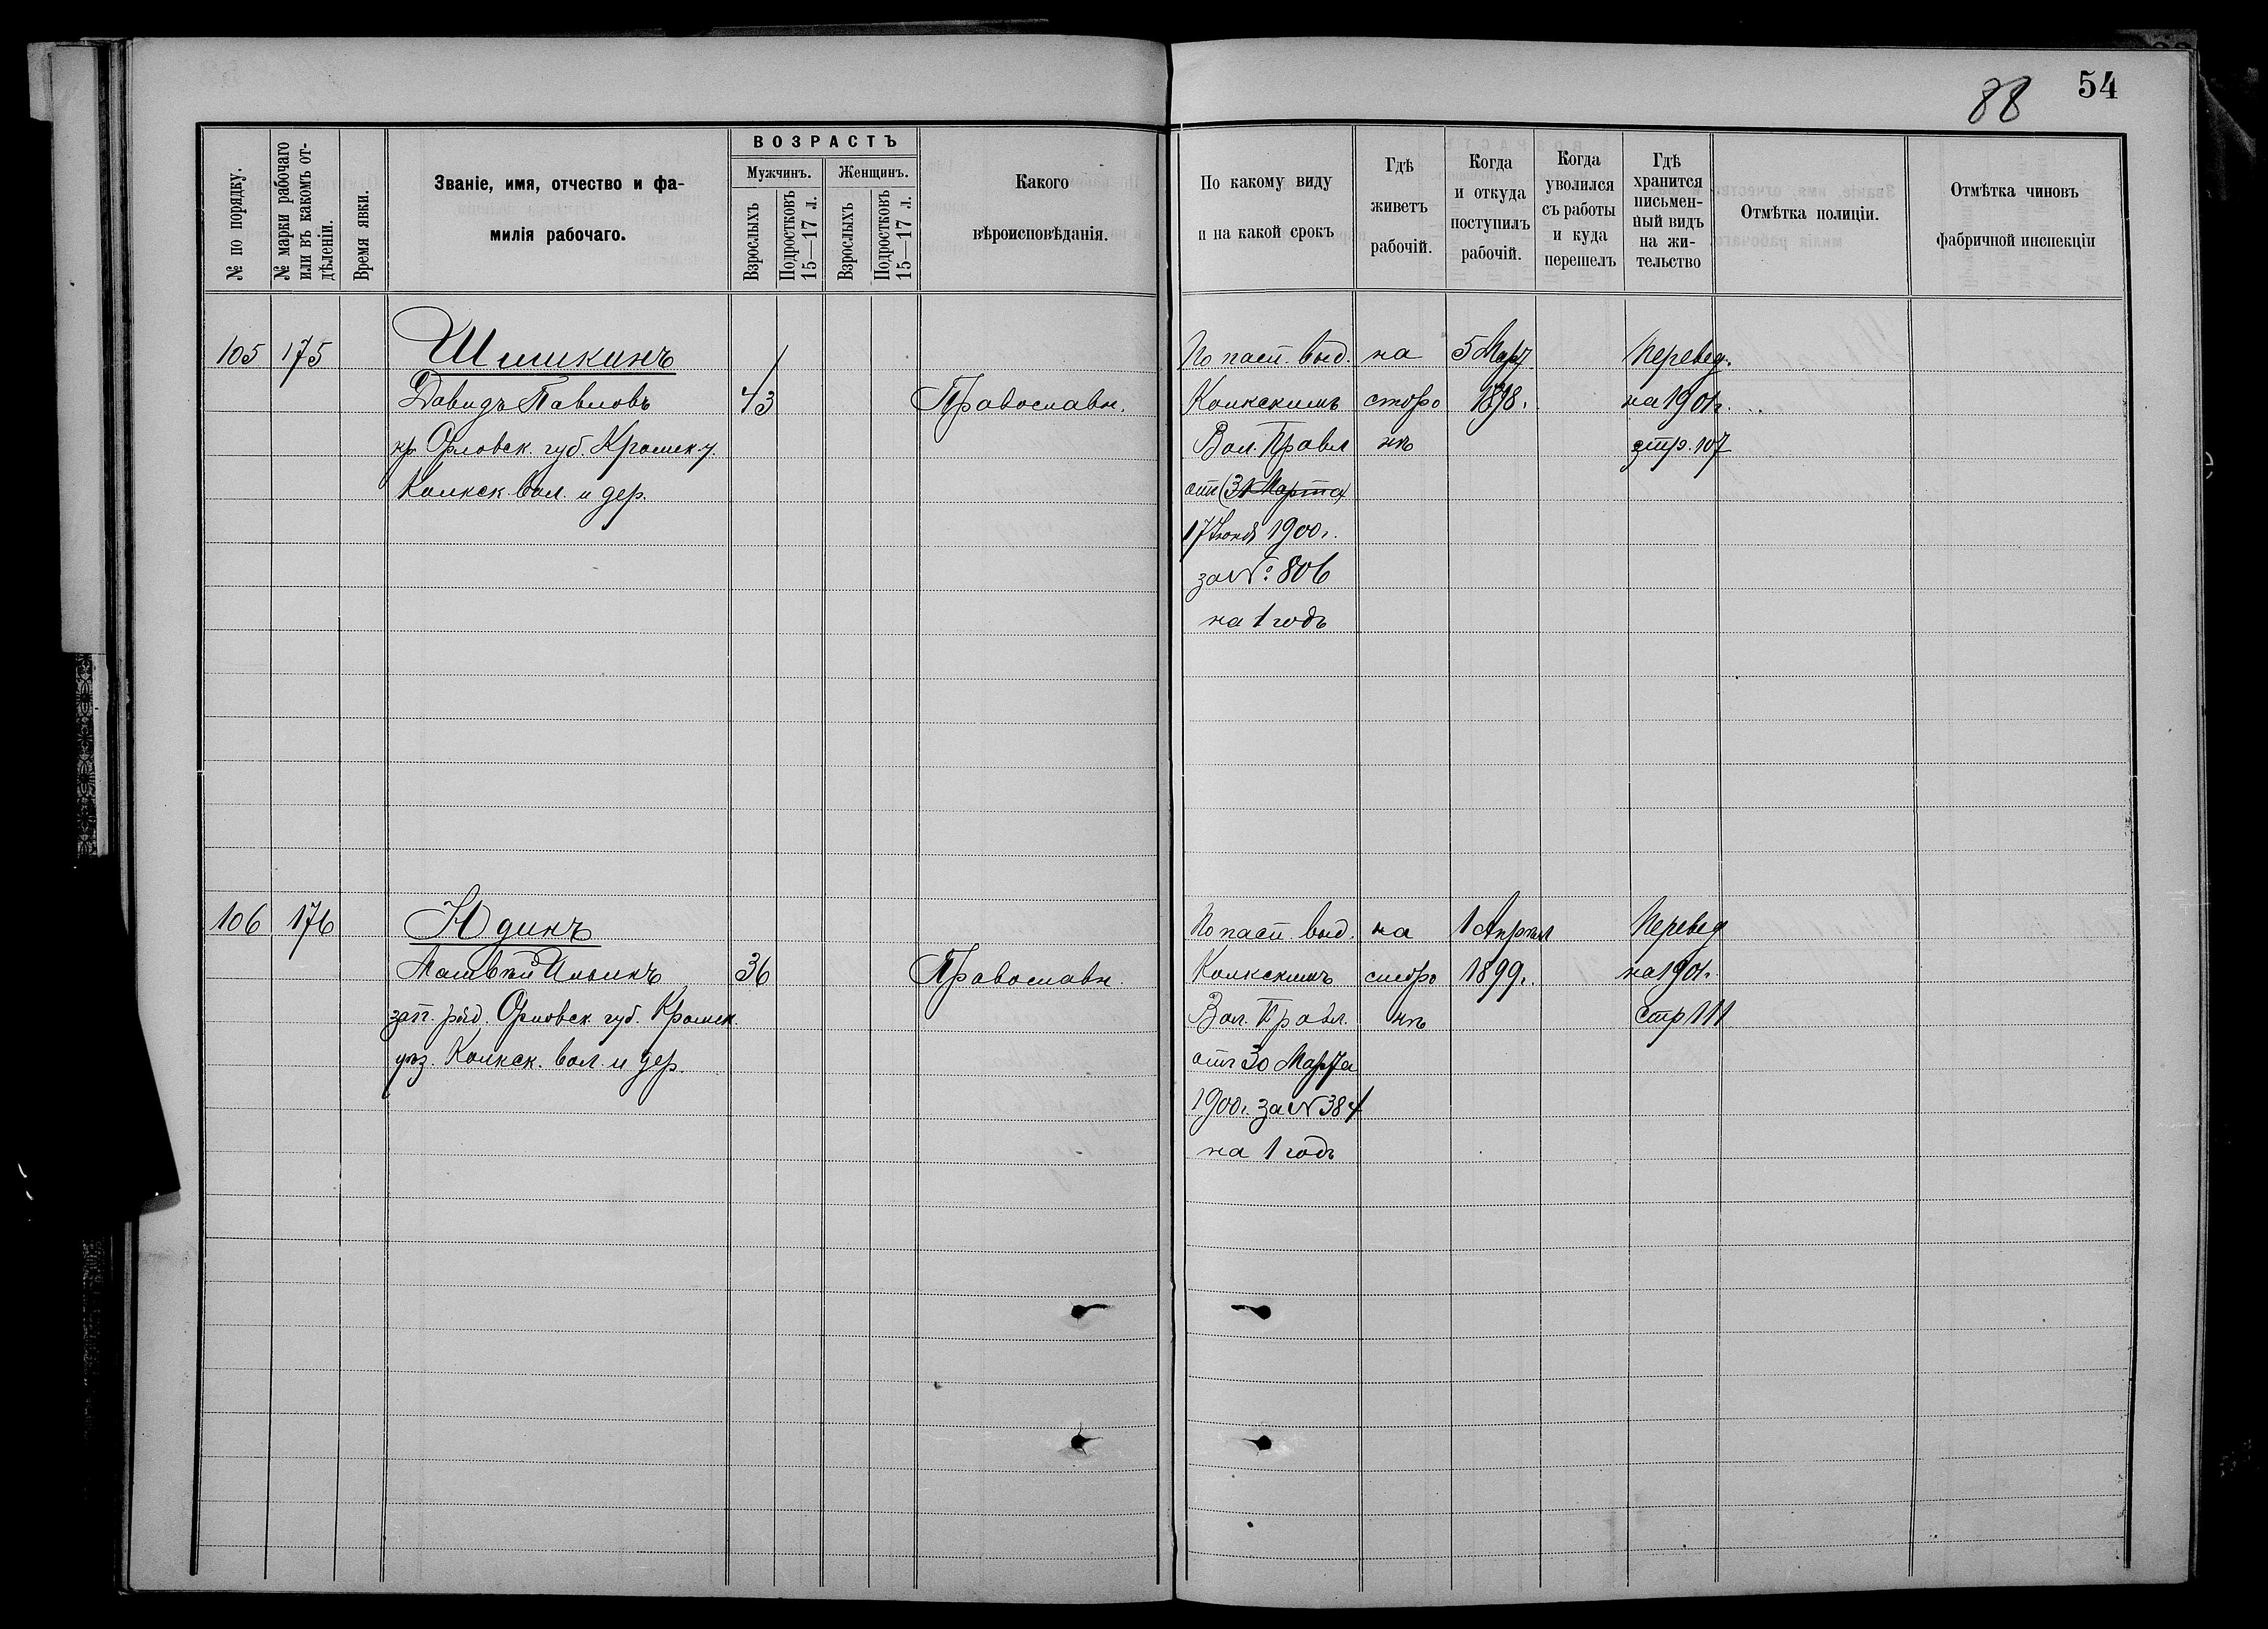 88 54
№ по порядку.
№ марки рабочаго или въ какомъ отдѣленіи.
Время явки.
Званіе, имя, отчество и фа-
милія рабочаго.
ВОЗРАСТЪ
Мужчинъ. Женщинъ.
Взрослыхъ
Подростковъ 15—17 л.
Взрослыхъ
Подростковъ 15—17 л.
Какого
вѣроисповѣданія.
По какому виду
и на какой срокъ
Гдѣ
живетъ
рабочій.
Когда
и откуда
поступилъ
рабочій.
Когда
уволился
съ работы
и куда
перешелъ
Гдѣ
хранится
письмен-
ный видъ
на жи-
тельство
Отмѣтка полиціи.
Отмѣтка чиновъ
фабричной инспекціи
105 175 Шишкинъ По пасп. выд. на 5 Март Перевед.
Давидъ Павловъ 43 Православн. Колкскимъ сторо 1898. на 1901г.
кр. Орловск. губ. Кромск. у. Вол. Правл нѣ стр. 107
Колкск. вол. и дер. отъ (31 Марта)
17 Іюня 1900г.
за № 806
на 1 годъ
106 176 Юдинъ По пасп. выд. на 1 Апрѣля Перевед
Матвѣй Ильинъ 36 Православн. Колкскимъ сторо 1899г. на 1901г.
зап. ряд. Орловск. губ. Кромск. Вол. Правл. нѣ Стр 111
уѣз. Колкск. вол. и дер. отъ 30 Марта
1900г. за № 384
на 1 годъ